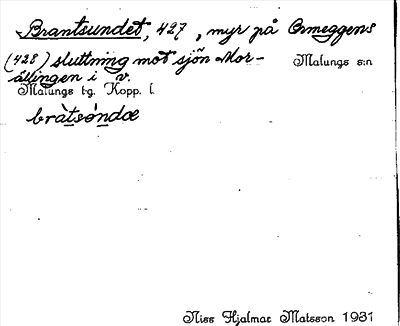 Brantsundet, 427, myr på Ormeggens
(428) sluttning mot sjön Mor-
ällingen i v.
Malungs s:n
Malungs tg. Kopp. l.
bràtsóndæ
Niss Hjalmar Matsson 1931